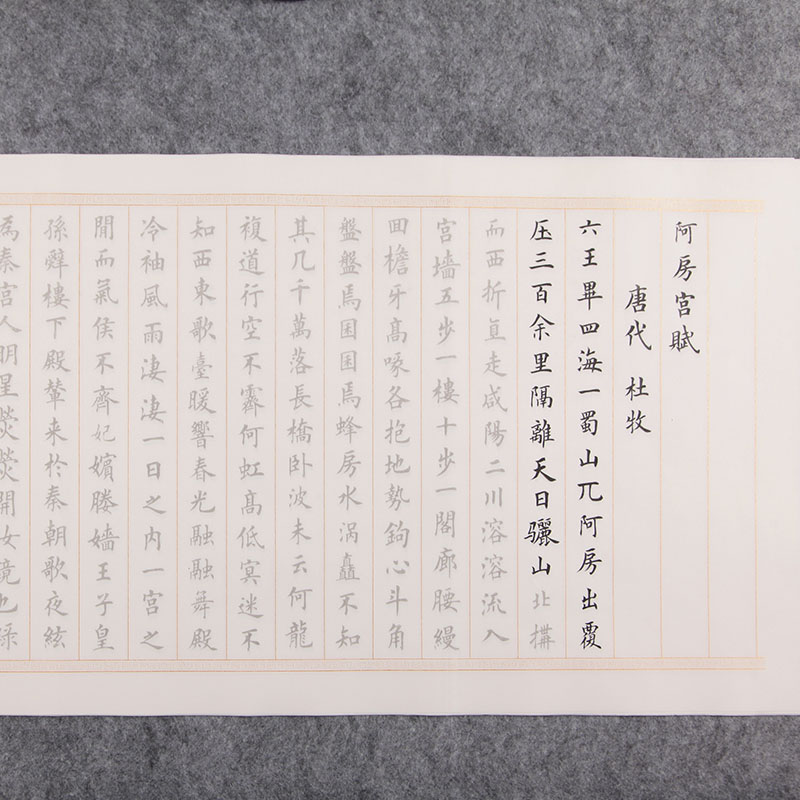 阿房宫賦
唐代 杜牧
六王畢四海一蜀山兀阿房出覆
压三百余里隔離天日骊山北搆
而西折直走咸陽二川溶溶流入
宫墙五步一樓十步一閣廊腰縵
回檐牙髙啄各抱地勢鉤心斗角
盤盤焉囷囷焉蜂房水涡矗不知
其几千萬落長橋卧波未云何龍
複道行空不霽何虹髙低冥迷不
知西東歌臺暖響春光融融舞殿
冷袖風雨淒淒一日之内一宫之
間而氣侯不齊妃嬪媵嬙王子皇
孫辭樓下殿輦来於秦朝歌夜絃
為秦宫人明星熒熒開女竟也渌